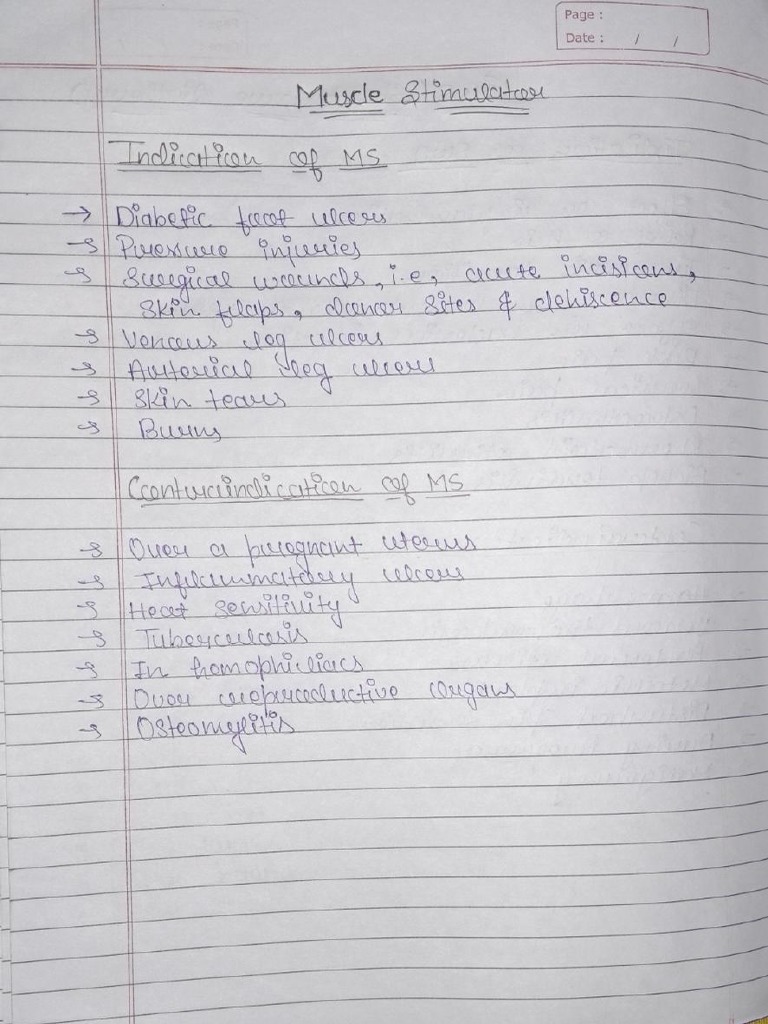 Page :
Date : / /
Muscle Stimulator
Indication of MS
→ Diabetic foot ulcers
→ Pressure injuries
→ Surgical wounds, i.e, acute incisions,
Skin flaps, doner sites & dehiscence
→ Venous leg ulcers
→ Arterial leg ulcers
→ Skin tears
→ Burns
Contraindication of MS
→ Over a pregnant uterus
→ Inflammatory ulcers
→ Heat sensitivity
→ Tuberculosis
→ In homophiliacs
→ Over reproductive organs
→ Osteomylitis